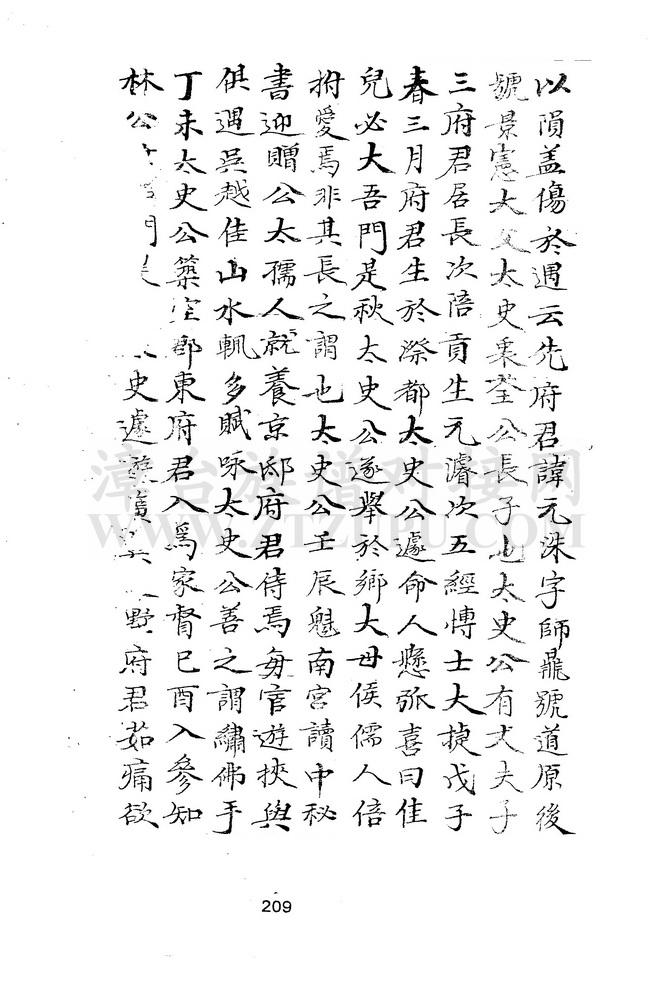 以隕盖傷於遇云先府君諱元洙字師鼎號道原後
號景憲大父太史乘公長子也太史公有丈夫子
三府君居長次陪貢生元濬次五經博士大捷戊子
春三月府君生於漈都太史公遽命人懸弧喜曰佳
兒必大吾門是秋太史公遂舉於鄉大母侯儒人倍
拊愛焉非其長之謂也太史公壬辰魁南宮讀中秘
書迎贈公太孺人就養京邸府君侍焉每宦遊挾與
俱遇吳越佳山水輒多賦咏太史公善之謂繡佛手
丁未太史公築室郡東府君入爲家督己酉入參知
林公門史遽野府君茹痛欲
漳台族譜对接网
WWW.ZTZUPU.COM
209